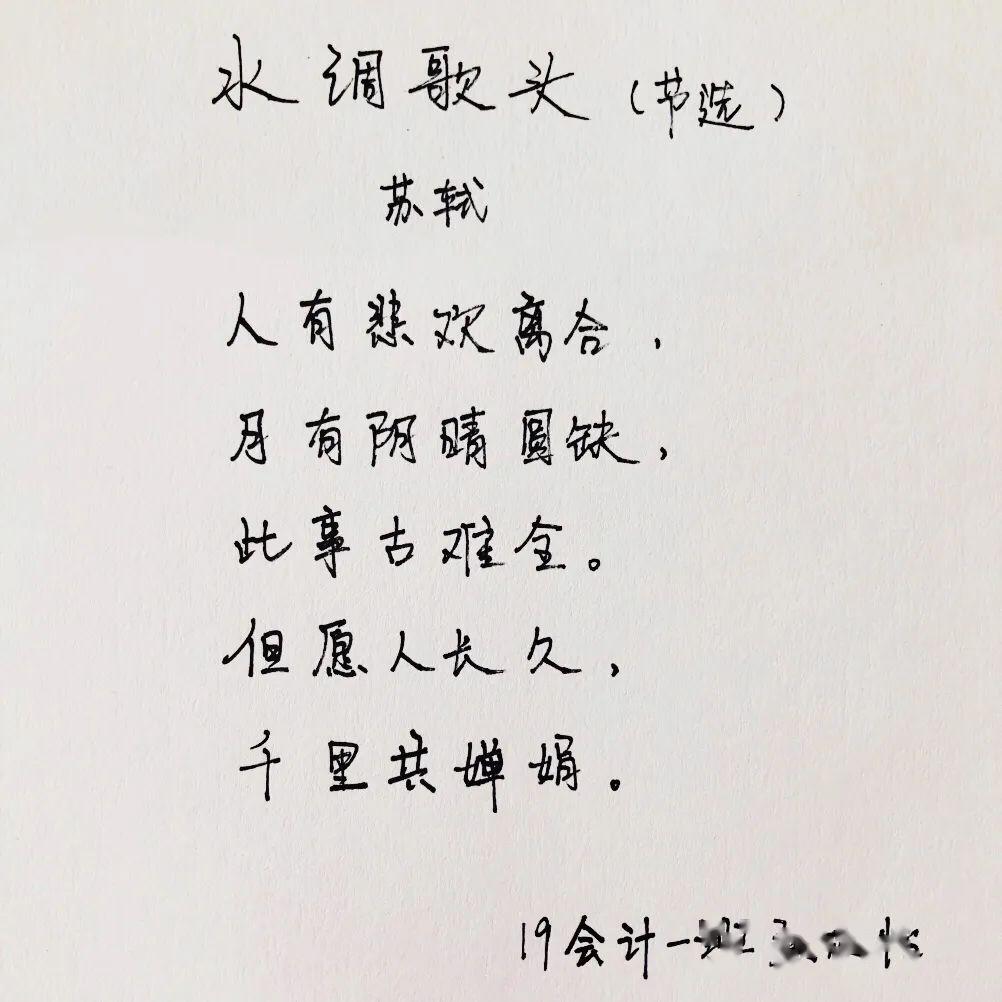 水调歌头（节选）
苏轼
人有悲欢离合，
月有阴晴圆缺，
此事古难全。
但愿人长久，
千里共婵娟。
19会计一班